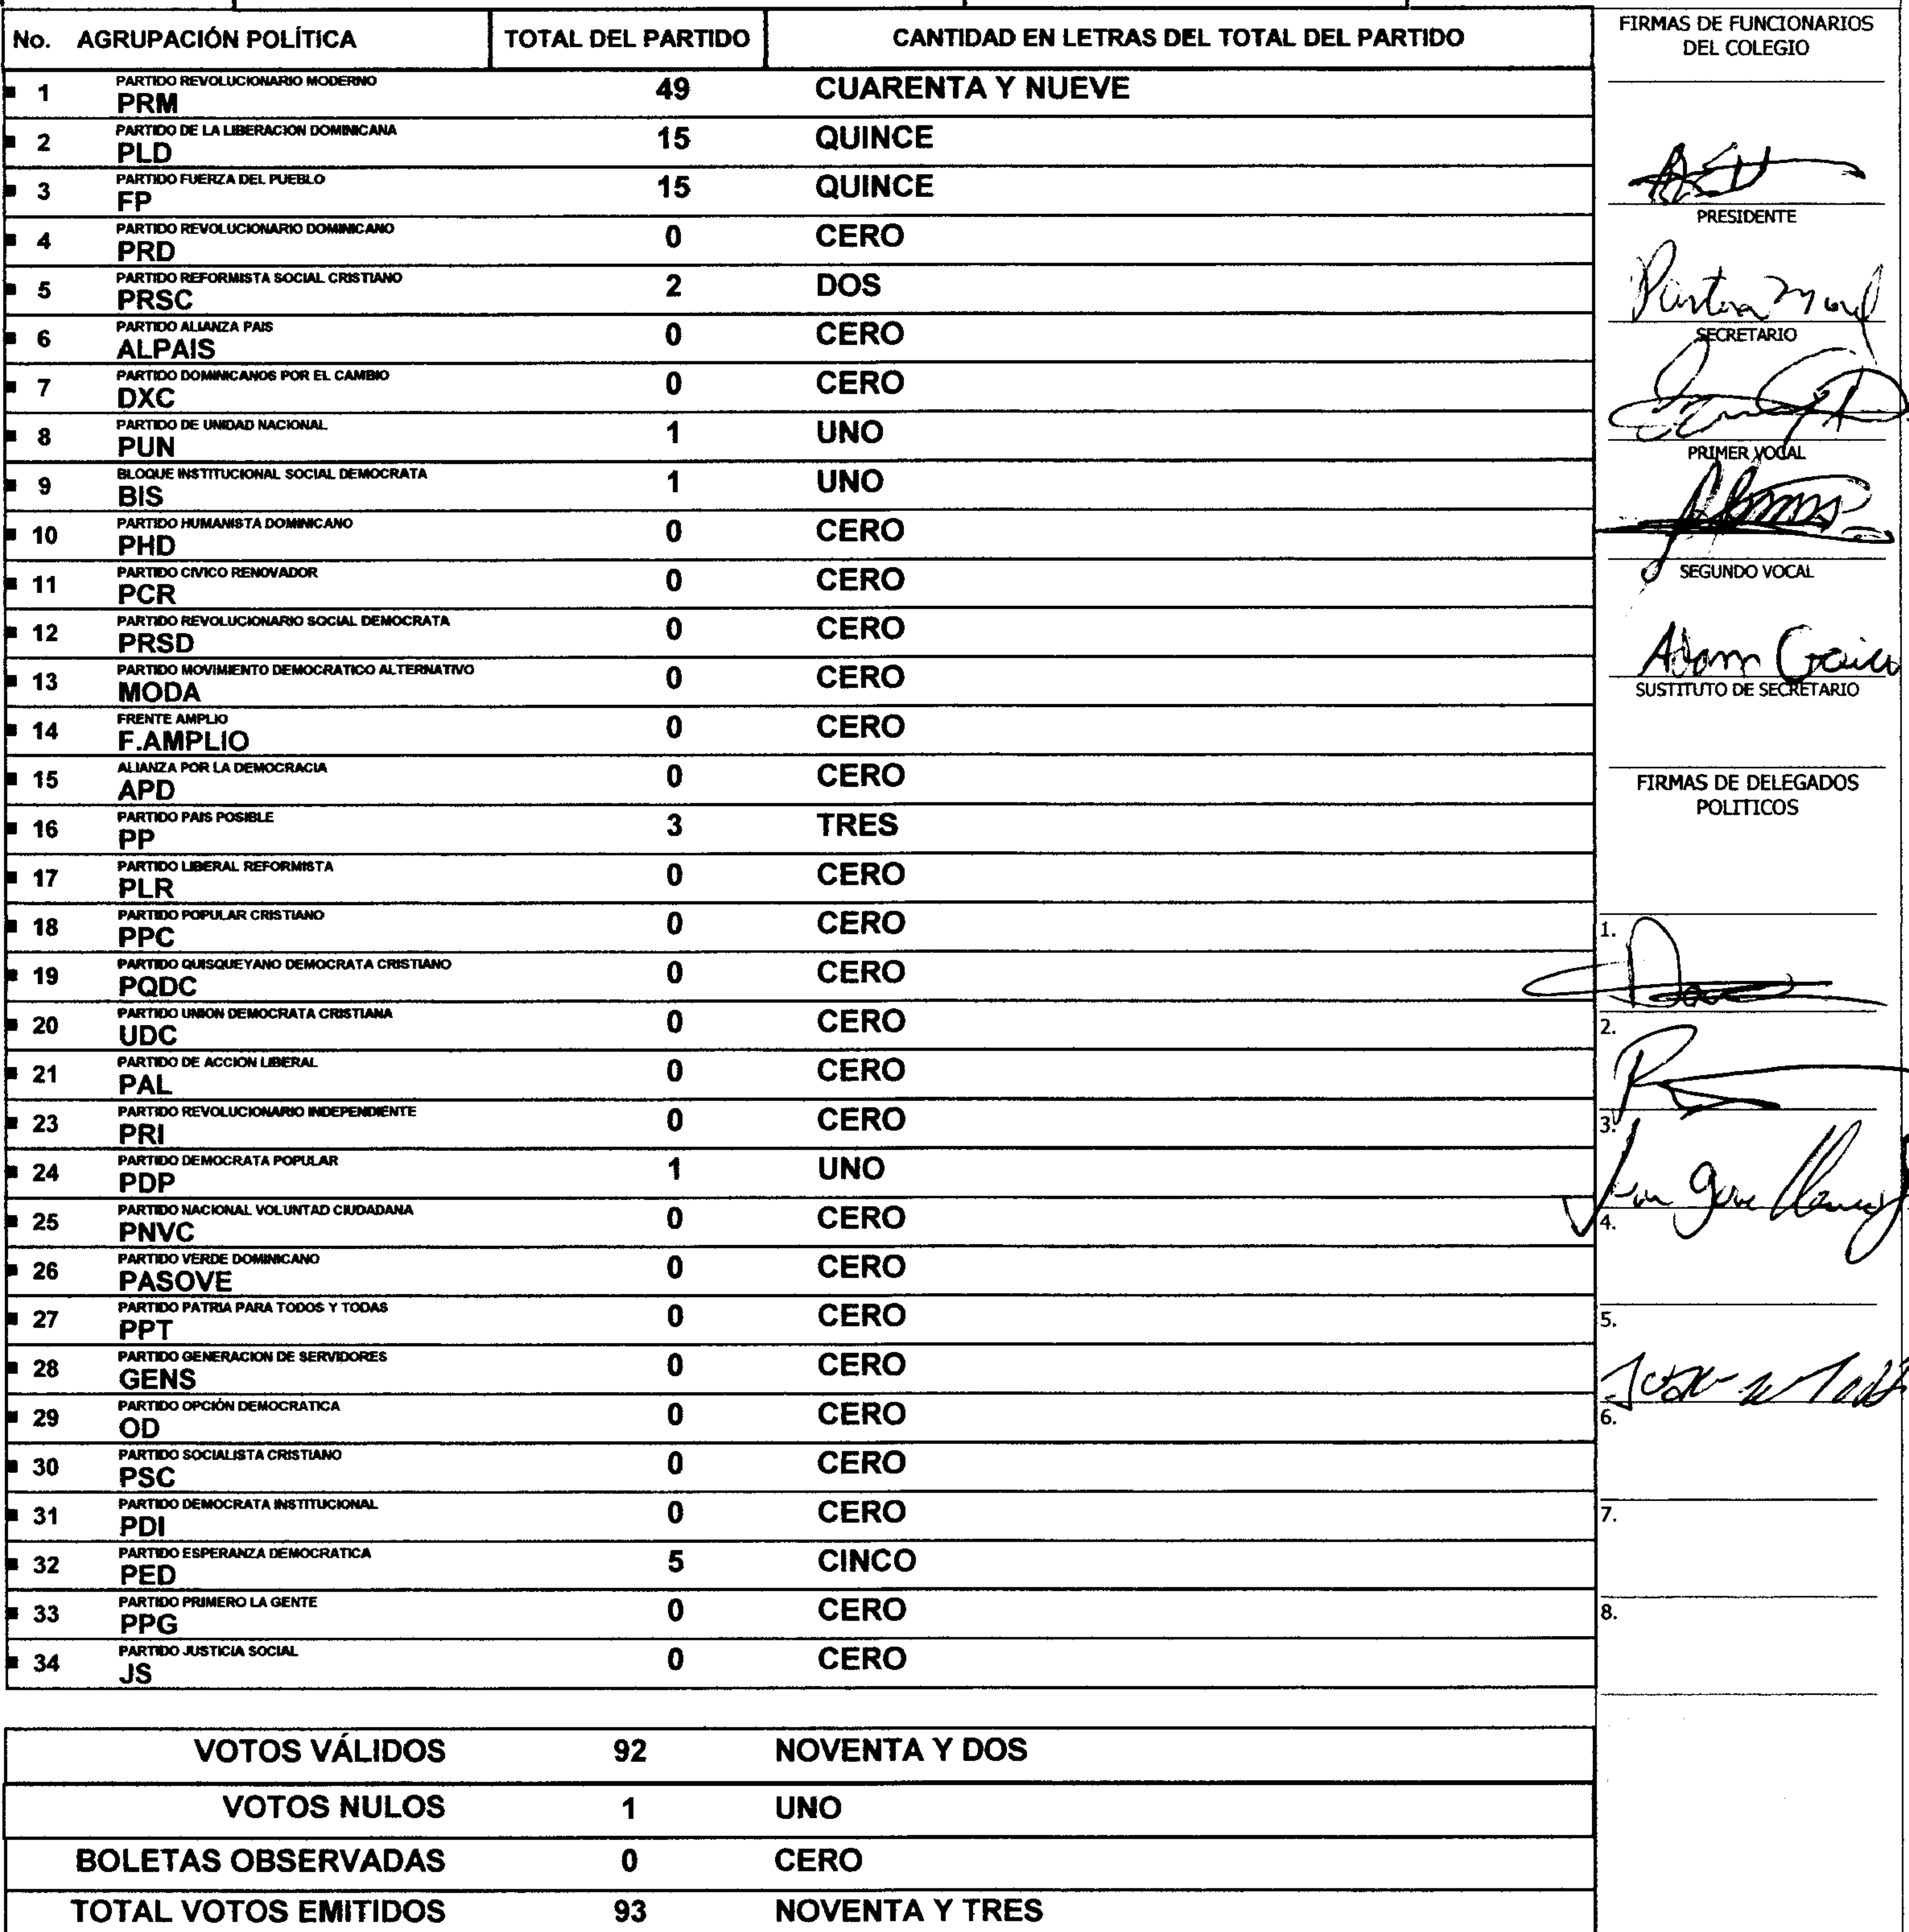 No. AGRUPACIÓN POLÍTICA TOTAL DEL PARTIDO CANTIDAD EN LETRAS DEL TOTAL DEL PARTIDO
PARTIDO REVOLUCIONARIO MODERNO
1 PRM 49 CUARENTA Y NUEVE
PARTIDO DE LA LIBERACION DOMINICANA
2 PLD 15 QUINCE
PARTIDO FUERZA DEL PUEBLO
3 FP 15 QUINCE
PARTIDO REVOLUCIONARIO DOMINICANO
4 PRD 0 CERO
PARTIDO REFORMISTA SOCIAL CRISTIANO
5 PRSC 2 DOS
PARTIDO ALIANZA PAIS
6 ALPAIS 0 CERO
PARTIDO DOMINICANOS POR EL CAMBIO
7 DXC 0 CERO
PARTIDO DE UNIDAD NACIONAL
8 PUN 1 UNO
BLOQUE INSTITUCIONAL SOCIAL DEMOCRATA
9 BIS 1 UNO
PARTIDO HUMANISTA DOMINICANO
10 PHD 0 CERO
PARTIDO CIVICO RENOVADOR
11 PCR 0 CERO
PARTIDO REVOLUCIONARIO SOCIAL DEMOCRATA
12 PRSD 0 CERO
PARTIDO MOVIMIENTO DEMOCRATICO ALTERNATIVO
13 MODA 0 CERO
FRENTE AMPLIO
14 F.AMPLIO 0 CERO
ALIANZA POR LA DEMOCRACIA
15 APD 0 CERO
PARTIDO PAIS POSIBLE
16 PP 3 TRES
PARTIDO LIBERAL REFORMISTA
17 PLR 0 CERO
PARTIDO POPULAR CRISTIANO
18 PPC 0 CERO
PARTIDO QUISQUEYANO DEMOCRATA CRISTIANO
19 PQDC 0 CERO
PARTIDO UNION DEMOCRATA CRISTIANA
20 UDC 0 CERO
PARTIDO DE ACCION LIBERAL
21 PAL 0 CERO
PARTIDO REVOLUCIONARIO INDEPENDIENTE
23 PRI 0 CERO
PARTIDO DEMOCRATA POPULAR
24 PDP 1 UNO
PARTIDO NACIONAL VOLUNTAD CIUDADANA
25 PNVC 0 CERO
PARTIDO VERDE DOMINICANO
26 PASOVE 0 CERO
PARTIDO PATRIA PARA TODOS Y TODAS
27 PPT 0 CERO
PARTIDO GENERACION DE SERVIDORES
28 GENS 0 CERO
PARTIDO OPCIÓN DEMOCRATICA
29 OD 0 CERO
PARTIDO SOCIALISTA CRISTIANO
30 PSC 0 CERO
PARTIDO DEMOCRATA INSTITUCIONAL
31 PDI 0 CERO
PARTIDO ESPERANZA DEMOCRATICA
32 PED 5 CINCO
PARTIDO PRIMERO LA GENTE
33 PPG 0 CERO
PARTIDO JUSTICIA SOCIAL
34 JS 0 CERO
VOTOS VÁLIDOS 92 NOVENTA Y DOS
VOTOS NULOS 1 UNO
BOLETAS OBSERVADAS 0 CERO
TOTAL VOTOS EMITIDOS 93 NOVENTA Y TRES
FIRMAS DE FUNCIONARIOS
DEL COLEGIO
PRESIDENTE
SECRETARIO
PRIMER VOCAL
SEGUNDO VOCAL
SUSTITUTO DE SECRETARIO
FIRMAS DE DELEGADOS
POLITICOS
1.
2.
3.
4.
5.
6.
7.
8.